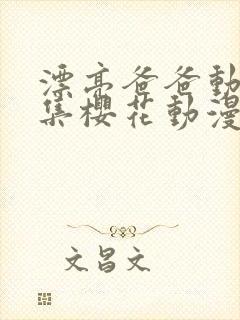 漂亮爸爸動
集櫻花動漫
文昌文